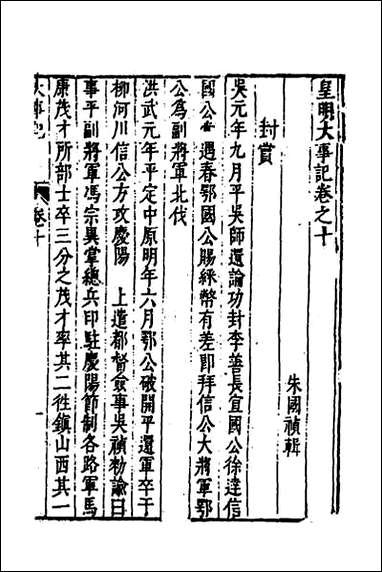 皇明大事記卷之十
朱國禎輯
封賞
吳元年九月平吳師還論功封李善長宣國公徐達信
國公常遇春鄂國公賜綵幣有差即拜信公大將軍鄂
公爲副將軍北伐
洪武元年平定中原明年六月鄂公破開平還軍卒于
柳河川信公方攻慶陽　上遣都督僉事吳禎勑諭曰
事平副將軍馮宗異掌總兵印駐慶陽節制各路軍馬
康茂才所部士卒三分之茂才率其二徃鎮山西其一
大事記
卷十
一